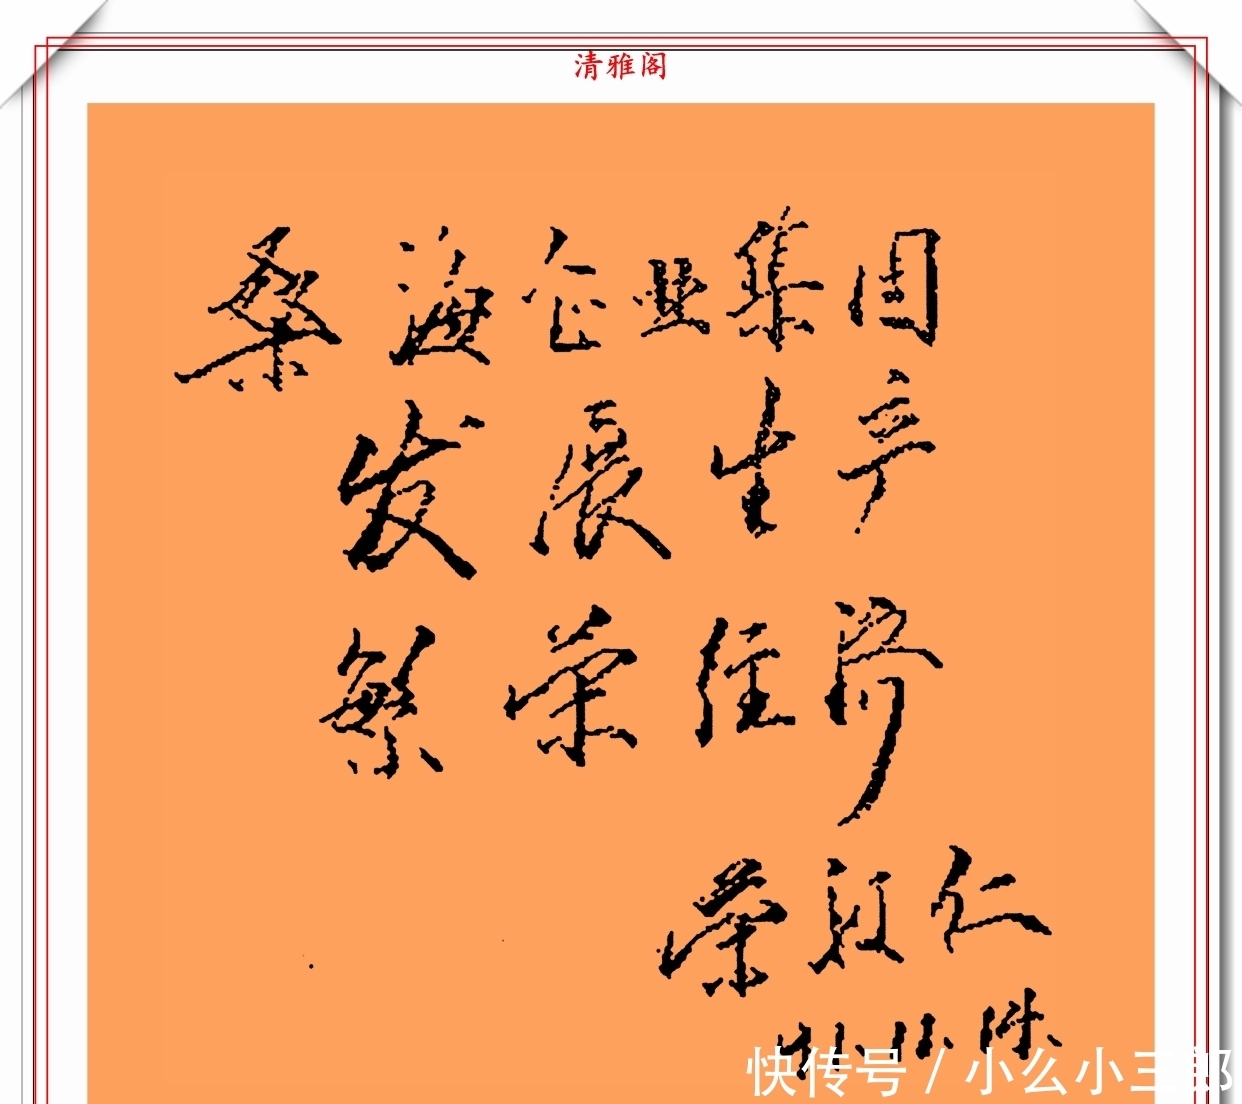 清雅阁
桑海企业集团
发展生产
繁荣经济
荣毅仁
快传号 / 小么小三郎